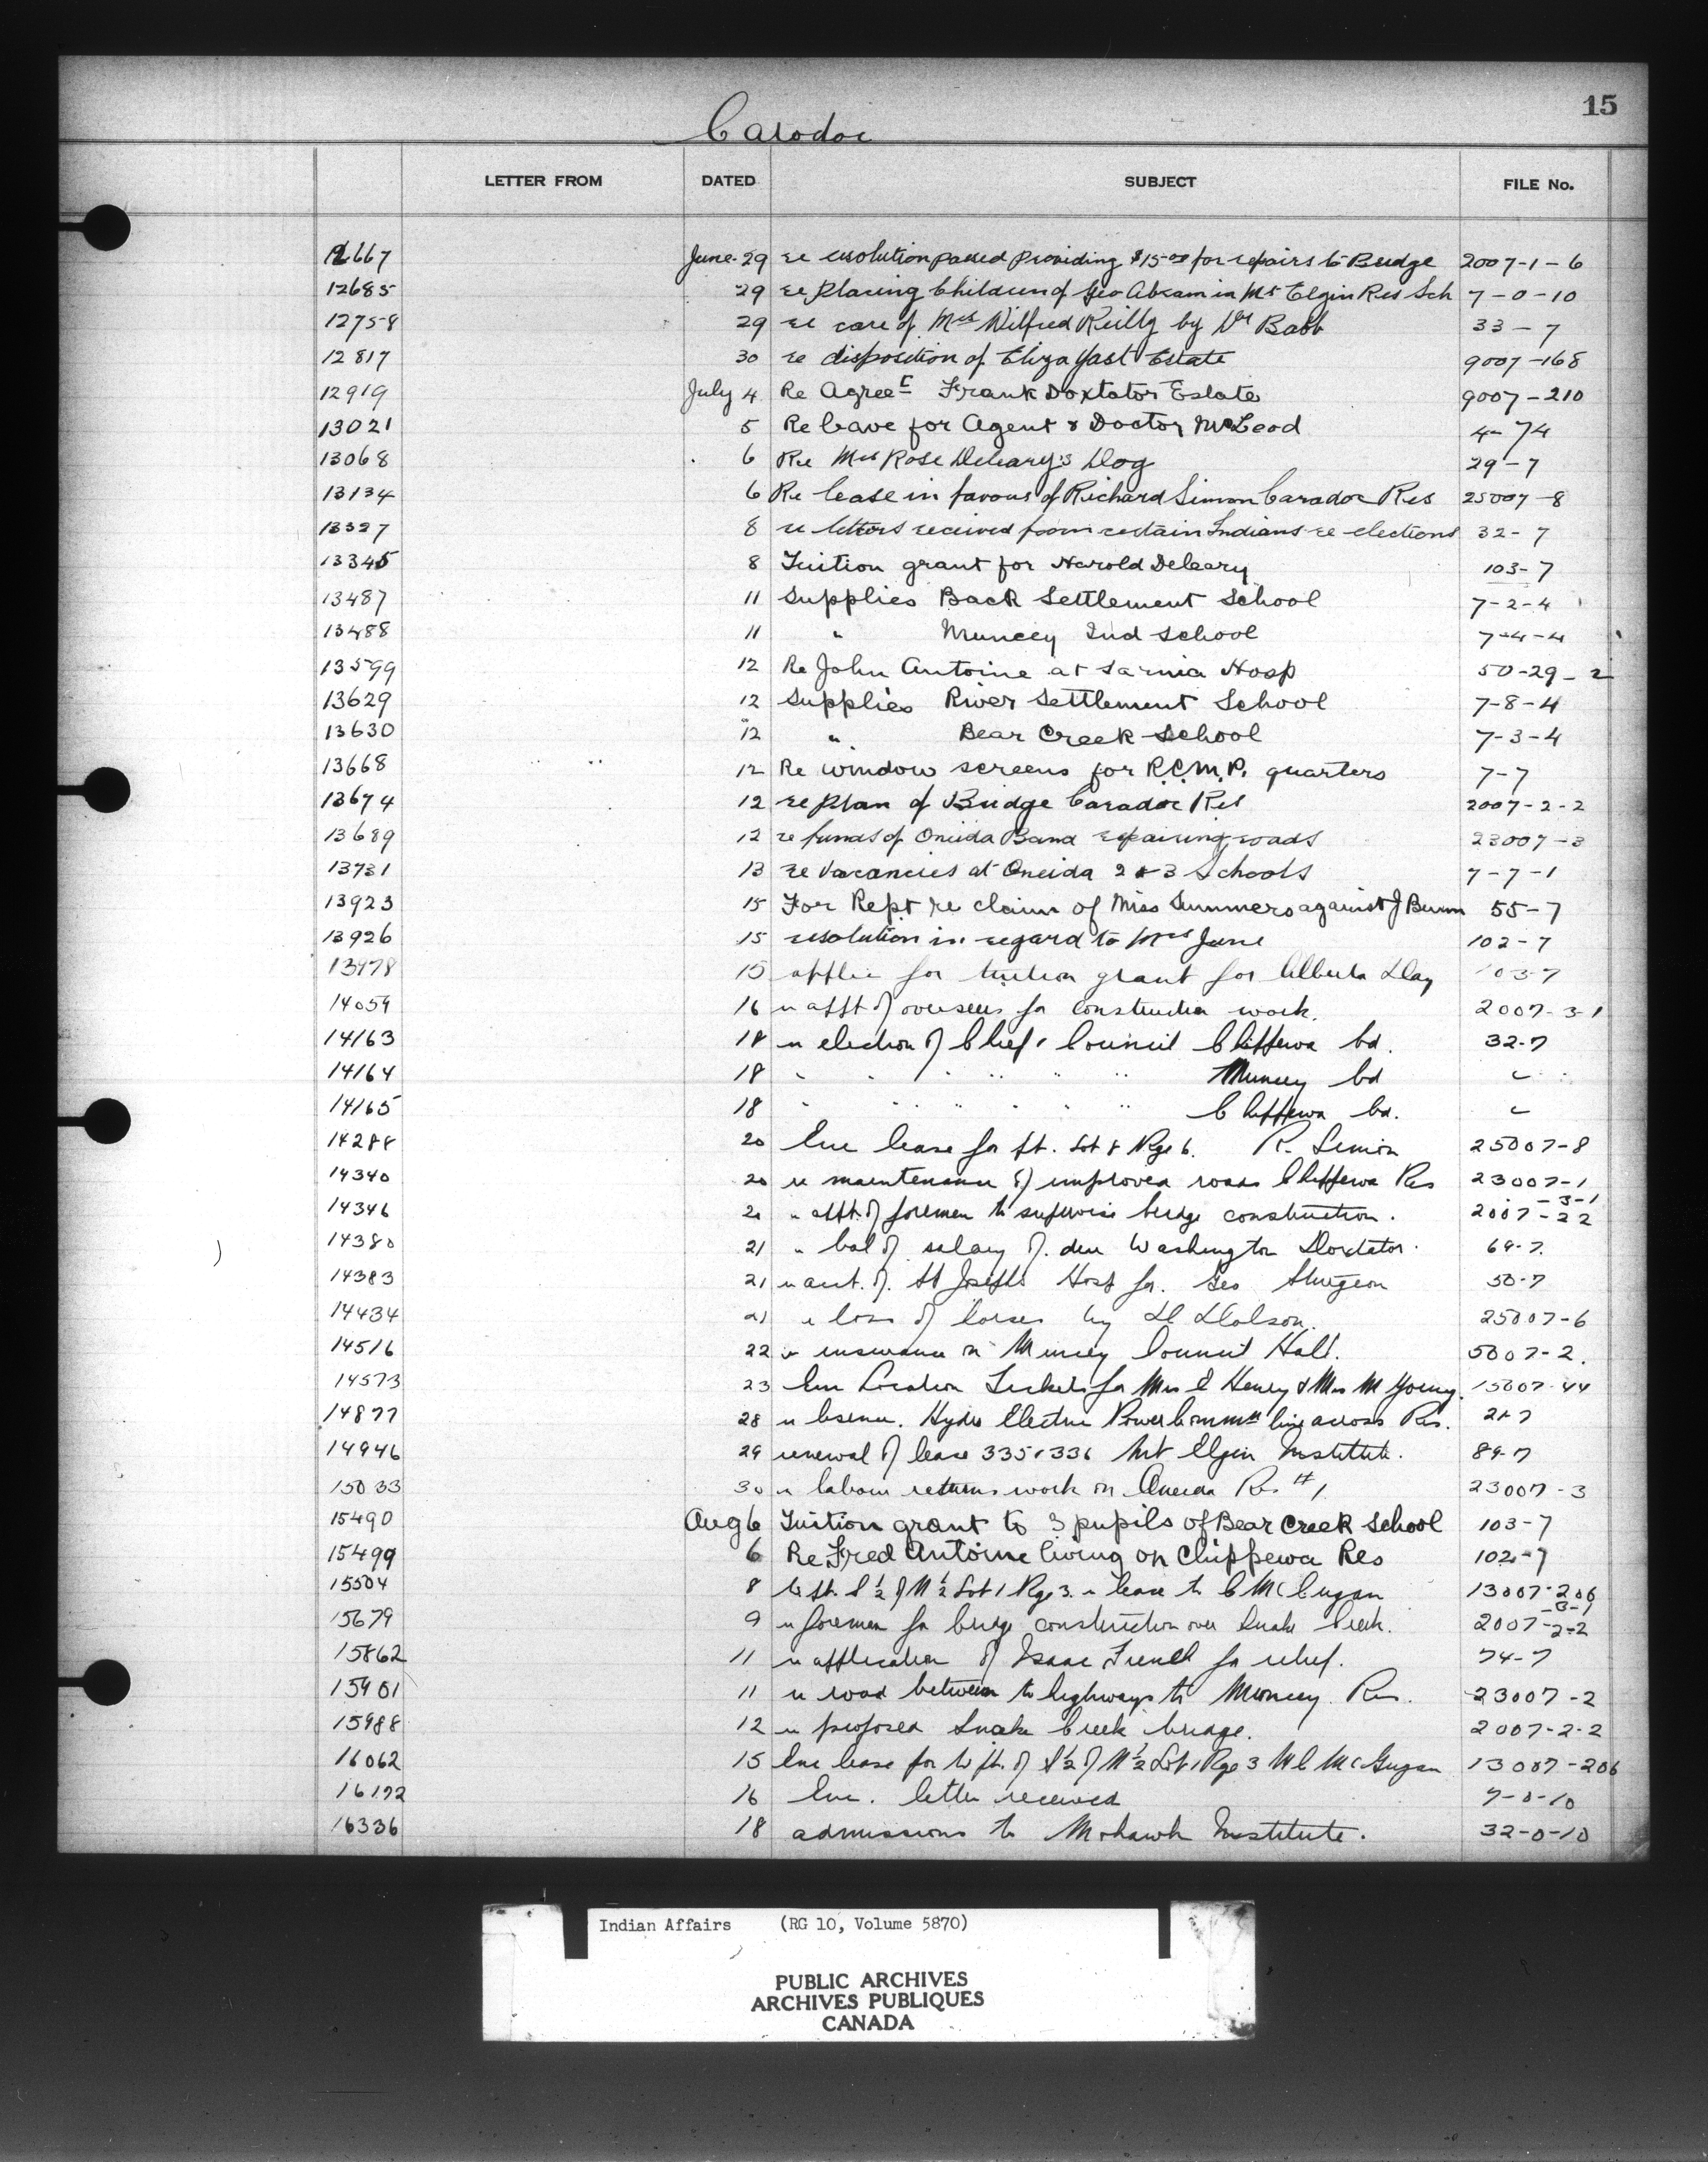 15
Caradoc
LETTER FROM DATED SUBJECT FILE No.
12667 June 29 re resolution passed providing $15.00 for repairs to Bridge 2007-1-6
12685 29 re placing Children of Geo Abram in Mt Elgin Res Sch 7-0-10
12758 29 re care of Mrs Wilfred Reilly by Dr Babb 33-7
12817 30 re disposition of Eliza Yast Estate 9007-168
12919 July 4 Re Agreet Frank Doxtator Estate 9007-210
13021 5 Re leave for Agent & Doctor McLeod 4-74
13068 6 Re Mrs Rose Deleary's Dog 29-7
13134 6 Re lease in favour of Richard Simon Caradoc Res 25007-8
13327 8 re letters received from certain Indians re elections 32-7
13345 8 Tuition grant for Harold Deleary 103-7
13487 11 Supplies Back Settlement School 7-2-4
13488 11 " Muncey Ind School 7-4-4
13599 12 Re John Antoine at Sarnia Hosp 50-29-2
13629 12 Supplies River Settlement School 7-8-4
13630 12 " Bear Creek School 7-3-4
13668 12 Re window screens for R.C.M.P. quarters 7-7
13674 12 re plan of Bridge Caradoc Res 2007-2-2
13689 12 re funds of Oneida Band repairing roads 23007-3
13731 13 re vacancies at Oneida 2 & 3 Schools 7-7-1
13923 15 For Rept re claim of Miss Summers against J 55-7
13926 15 resolution in regard to Mrs June 102-7
13978 15 applic for tuition grant for Alberta Day 103-7
14059 16 re appt of overseers for construction work. 2007-3-1
14163 18 re election of Chief & Council Chippewa bd. 32-7
14164 18 " " " " " " Muncey bd "
14165 18 " " " " " " Chippewa bd. "
14288 20 Enc lease for pt. Lot 8 Rge 6. R. Simon 25007-8
14340 20 re maintenance of improved roads Chippewa Res 23007-1
14346 20 " appt. of foremen to supervise bridge construction. 2007-3-1 -2-2
14380 21 " bal of salary of Washington Doxtator. 69-7.
14383 21 re acct. of St Josephs Hosp for Geo Sturgeon 50-7
14434 21 re loss of horses by Dolson. 25007-6
14516 22 re insurance on Muncey Council Hall. 5007-2.
14573 23 Enc Location Tickets for Mrs E Henry & Mrs M Young. 15007-44
14877 28 re license. Hydro Electric Power Commn line across Res. 21-7
14946 29 renewal of lease 335 & 336 Mt Elgin Institute. 89-7
15033 30 re labour returns work on Oneida Res #1 23007-3
15490 Aug 6 Tuition grant to 3 pupils of Bear Creek School 103-7
15499 6 Re Fred Antoine living on Chippewa Res 102-7
15504 8 W pt. S ½ of N ½ Lot 1 Rge 3. re lease to C McGugan 13007-206
15679 9 re foremen for bridge construction over Snake Creek. 2007-3-1 -2-2
15862 11 re application of Isaac French for relief. 74-7
15901 11 re road between to highways to Muncey Res. 23007-2
15988 12 re proposed Snake Creek bridge. 2007-2-2
16062 15 Enc lease for W pt. of S ½ of N ½ Lot 1 Rge 3 W C McGugan 13007-206
16192 16 Enc. letter received 7-0-10
16336 18 admissions to Mohawk Institute. 32-0-10
Indian Affairs (RG 10, Volume 5870)
PUBLIC ARCHIVES
ARCHIVES PUBLIQUES
CANADA